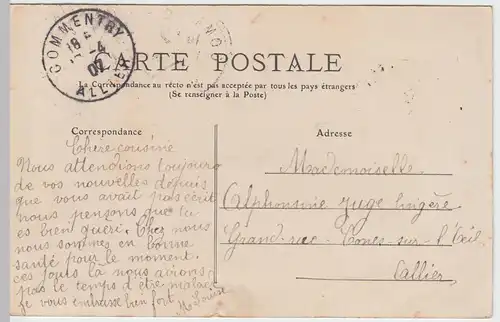 COMMENTRY
18 4
07
ALLIER
CARTE POSTALE
La Correspondance au récto n'est pas acceptée par tous les pays étrangers
(Se renseigner à la Poste)
Correspondance
Adresse
Chere cousine
Nous attendions toujours
de vos nouvelles depuis
que vous avait pas écrit
nous pensons que tu
es bien gueri. Chez nous
nous sommes en bonne
santé pour le moment.
ces jours là nous avions
pas le temps d'etre malade
je vous embrasse bien fort
M Louise
Mademoiselle
Alphonsine Juge lingère
Grand-rue - Cones-sur-l'Œil
L'allier